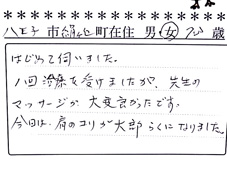 八王子市絹ヶ丘町在住 男 女 70 歳
はじめて伺いました。
1回治療を受けましたが、先生の
マッサージが大変良かったです。
今日は、肩のコリが大部らくになりました。